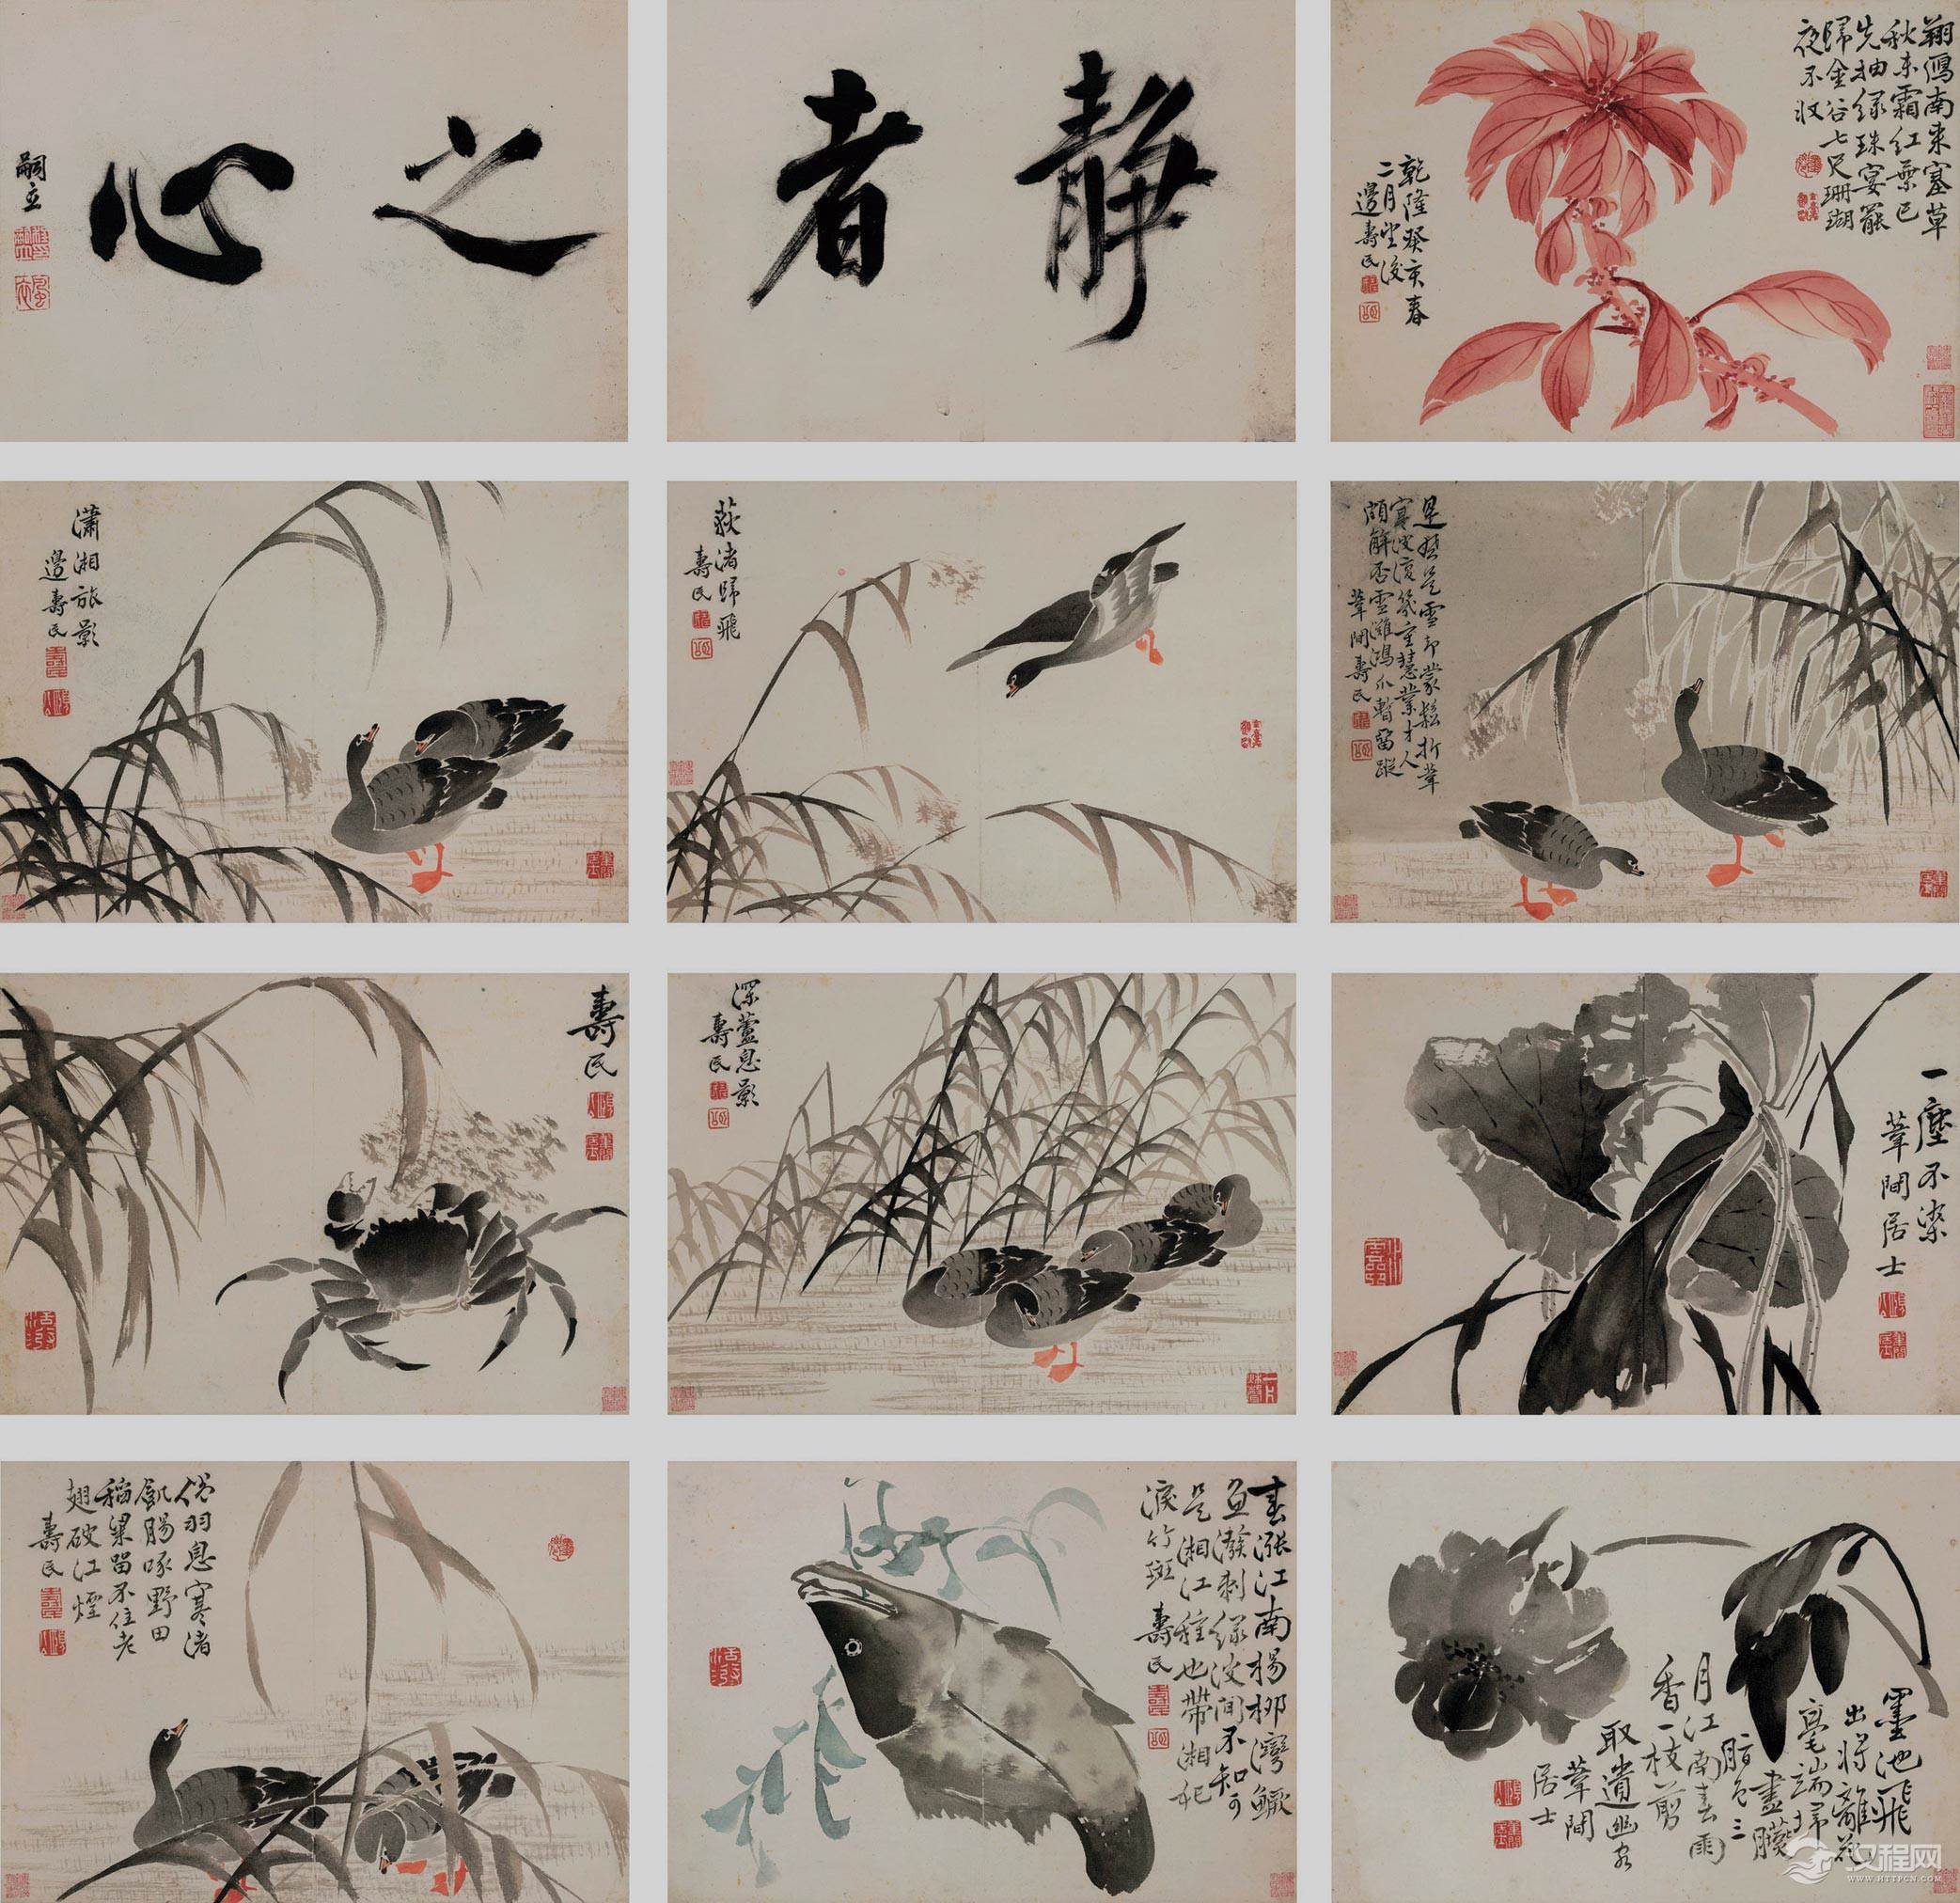 翔鴻南來塞草
秋未霜紅葉已
先抽綠珠宴罷
歸金谷七尺珊瑚
夜不收
乾隆癸亥春
二月望後
邊壽民
靜者
之心
嗣立
是是雪却蒙鬆折葦
寒波濱幾重慧業才人
頗解否雪灘鴻爪暫留蹤
葦間壽民
荻渚歸飛
壽民
瀟湘旅影
邊壽民
一塵不染
葦間居士
深蘆息影
壽民
壽民
墨池飛
出將離花
毫端掃
盡臙
脂色三
月江南春雨
香一枝剪
取遺幽客
葦間
居士
春漲江南楊柳灣鱖
魚潑剌綠波間不知可
是湘江種也帶湘妃
淚竹斑
壽民
倦羽息寒渚
飢腸啄野田
稻粱留不住老
翅破江煙
壽民
汉程网
WWW.HTTPCN.COM